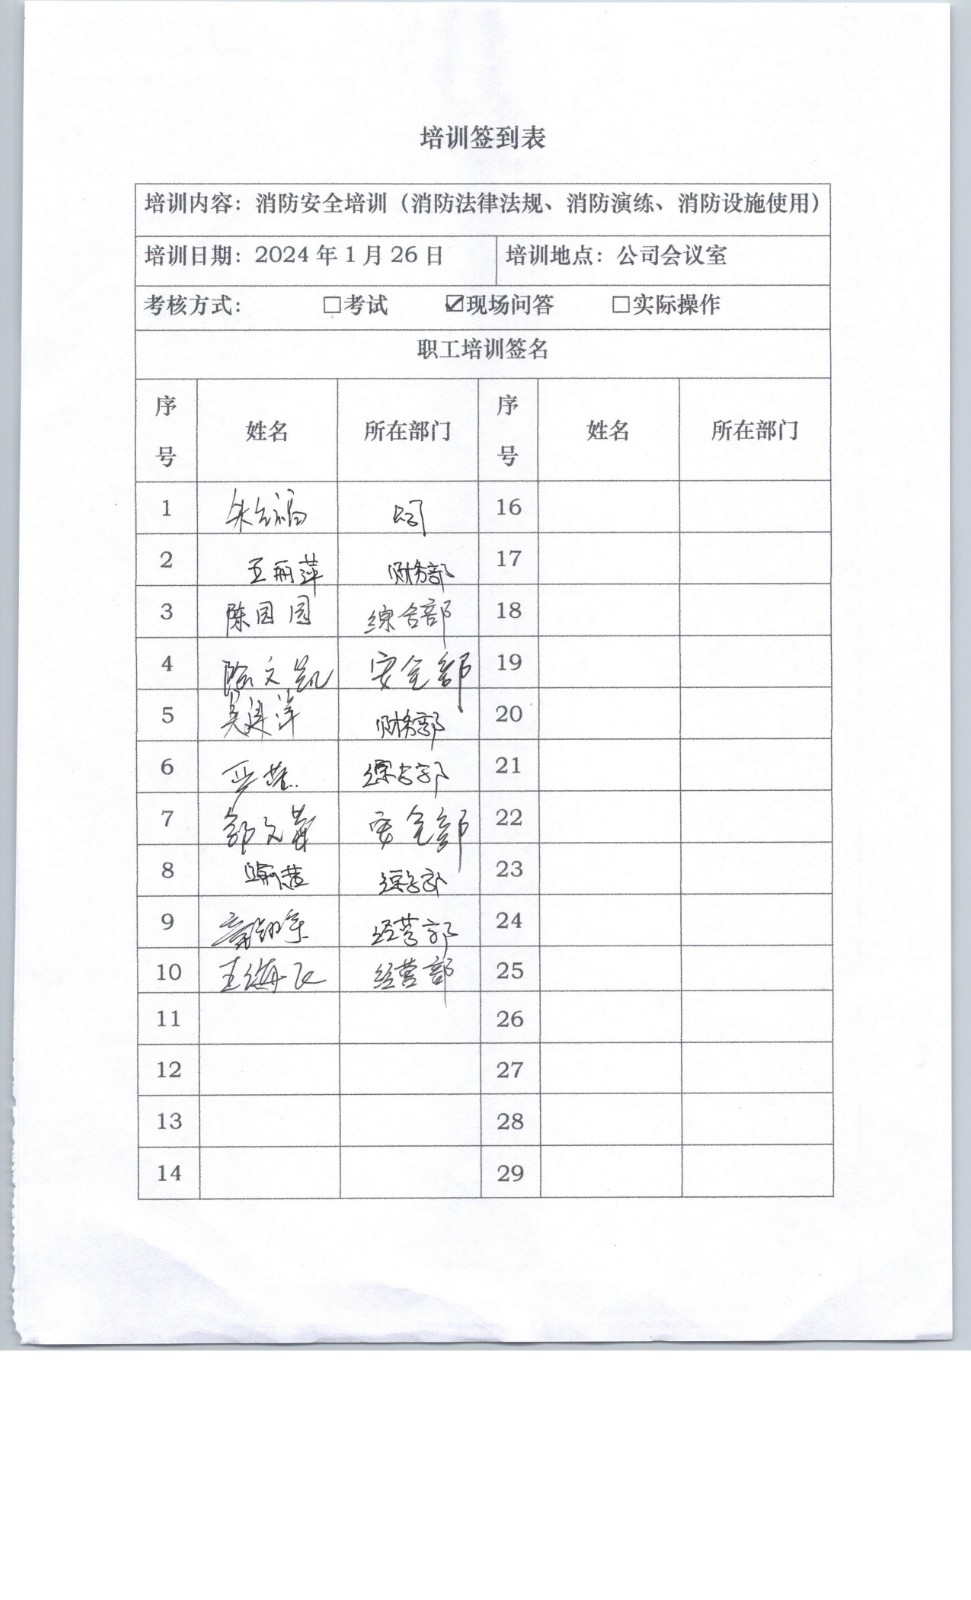 培训签到表
培训内容：消防安全培训（消防法律法规、消防演练、消防设施使用）
培训日期：2024 年 1 月 26 日 培训地点：公司会议室
考核方式： □考试 ☑现场问答 □实际操作
职工培训签名
序号 姓名 所在部门 序号 姓名 所在部门
1 16
2 王丽萍 财务部 17
3 陈园园 综合部 18
4 陈文凯 安全部 19
5 吴建洋 财务部 20
6 综合部 21
7 安全部 22
8 综合部 23
9 经营部 24
10 王海飞 经营部 25
11 26
12 27
13 28
14 29